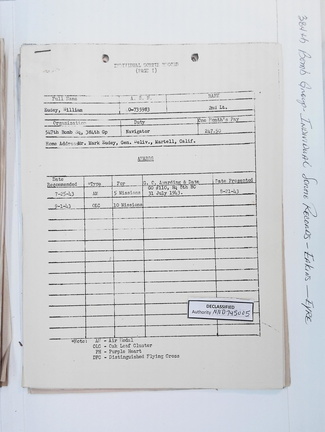 INDIVIDUAL SORTIE RECORD
(PAGE I)
Full Name A. S. N. RANK
William O-733983 2nd Lt.
Organization Duty One Month's Pay
547th Bomb Sq, 384th Gp Navigator 247.50
Home Address Mr. Mark Gen. Martell, Calif.
AWARDS
Date Recommended *Type For G. O. Awarding & Date Date Presented
7-25-43 AM 5 Missions GO #110, Hq 8th BC 31 July 1943. 8-21-43
9-1-43 OLC 10 Missions
DECLASSIFIED
Authority NND 745005
*Note: AM - Air Medal
OLC - Oak Leaf Cluster
PH - Purple Heart
DFC - Distinguished Flying Cross
384th Bomb Group: Individual Sortie Records - Eakins - Eyre